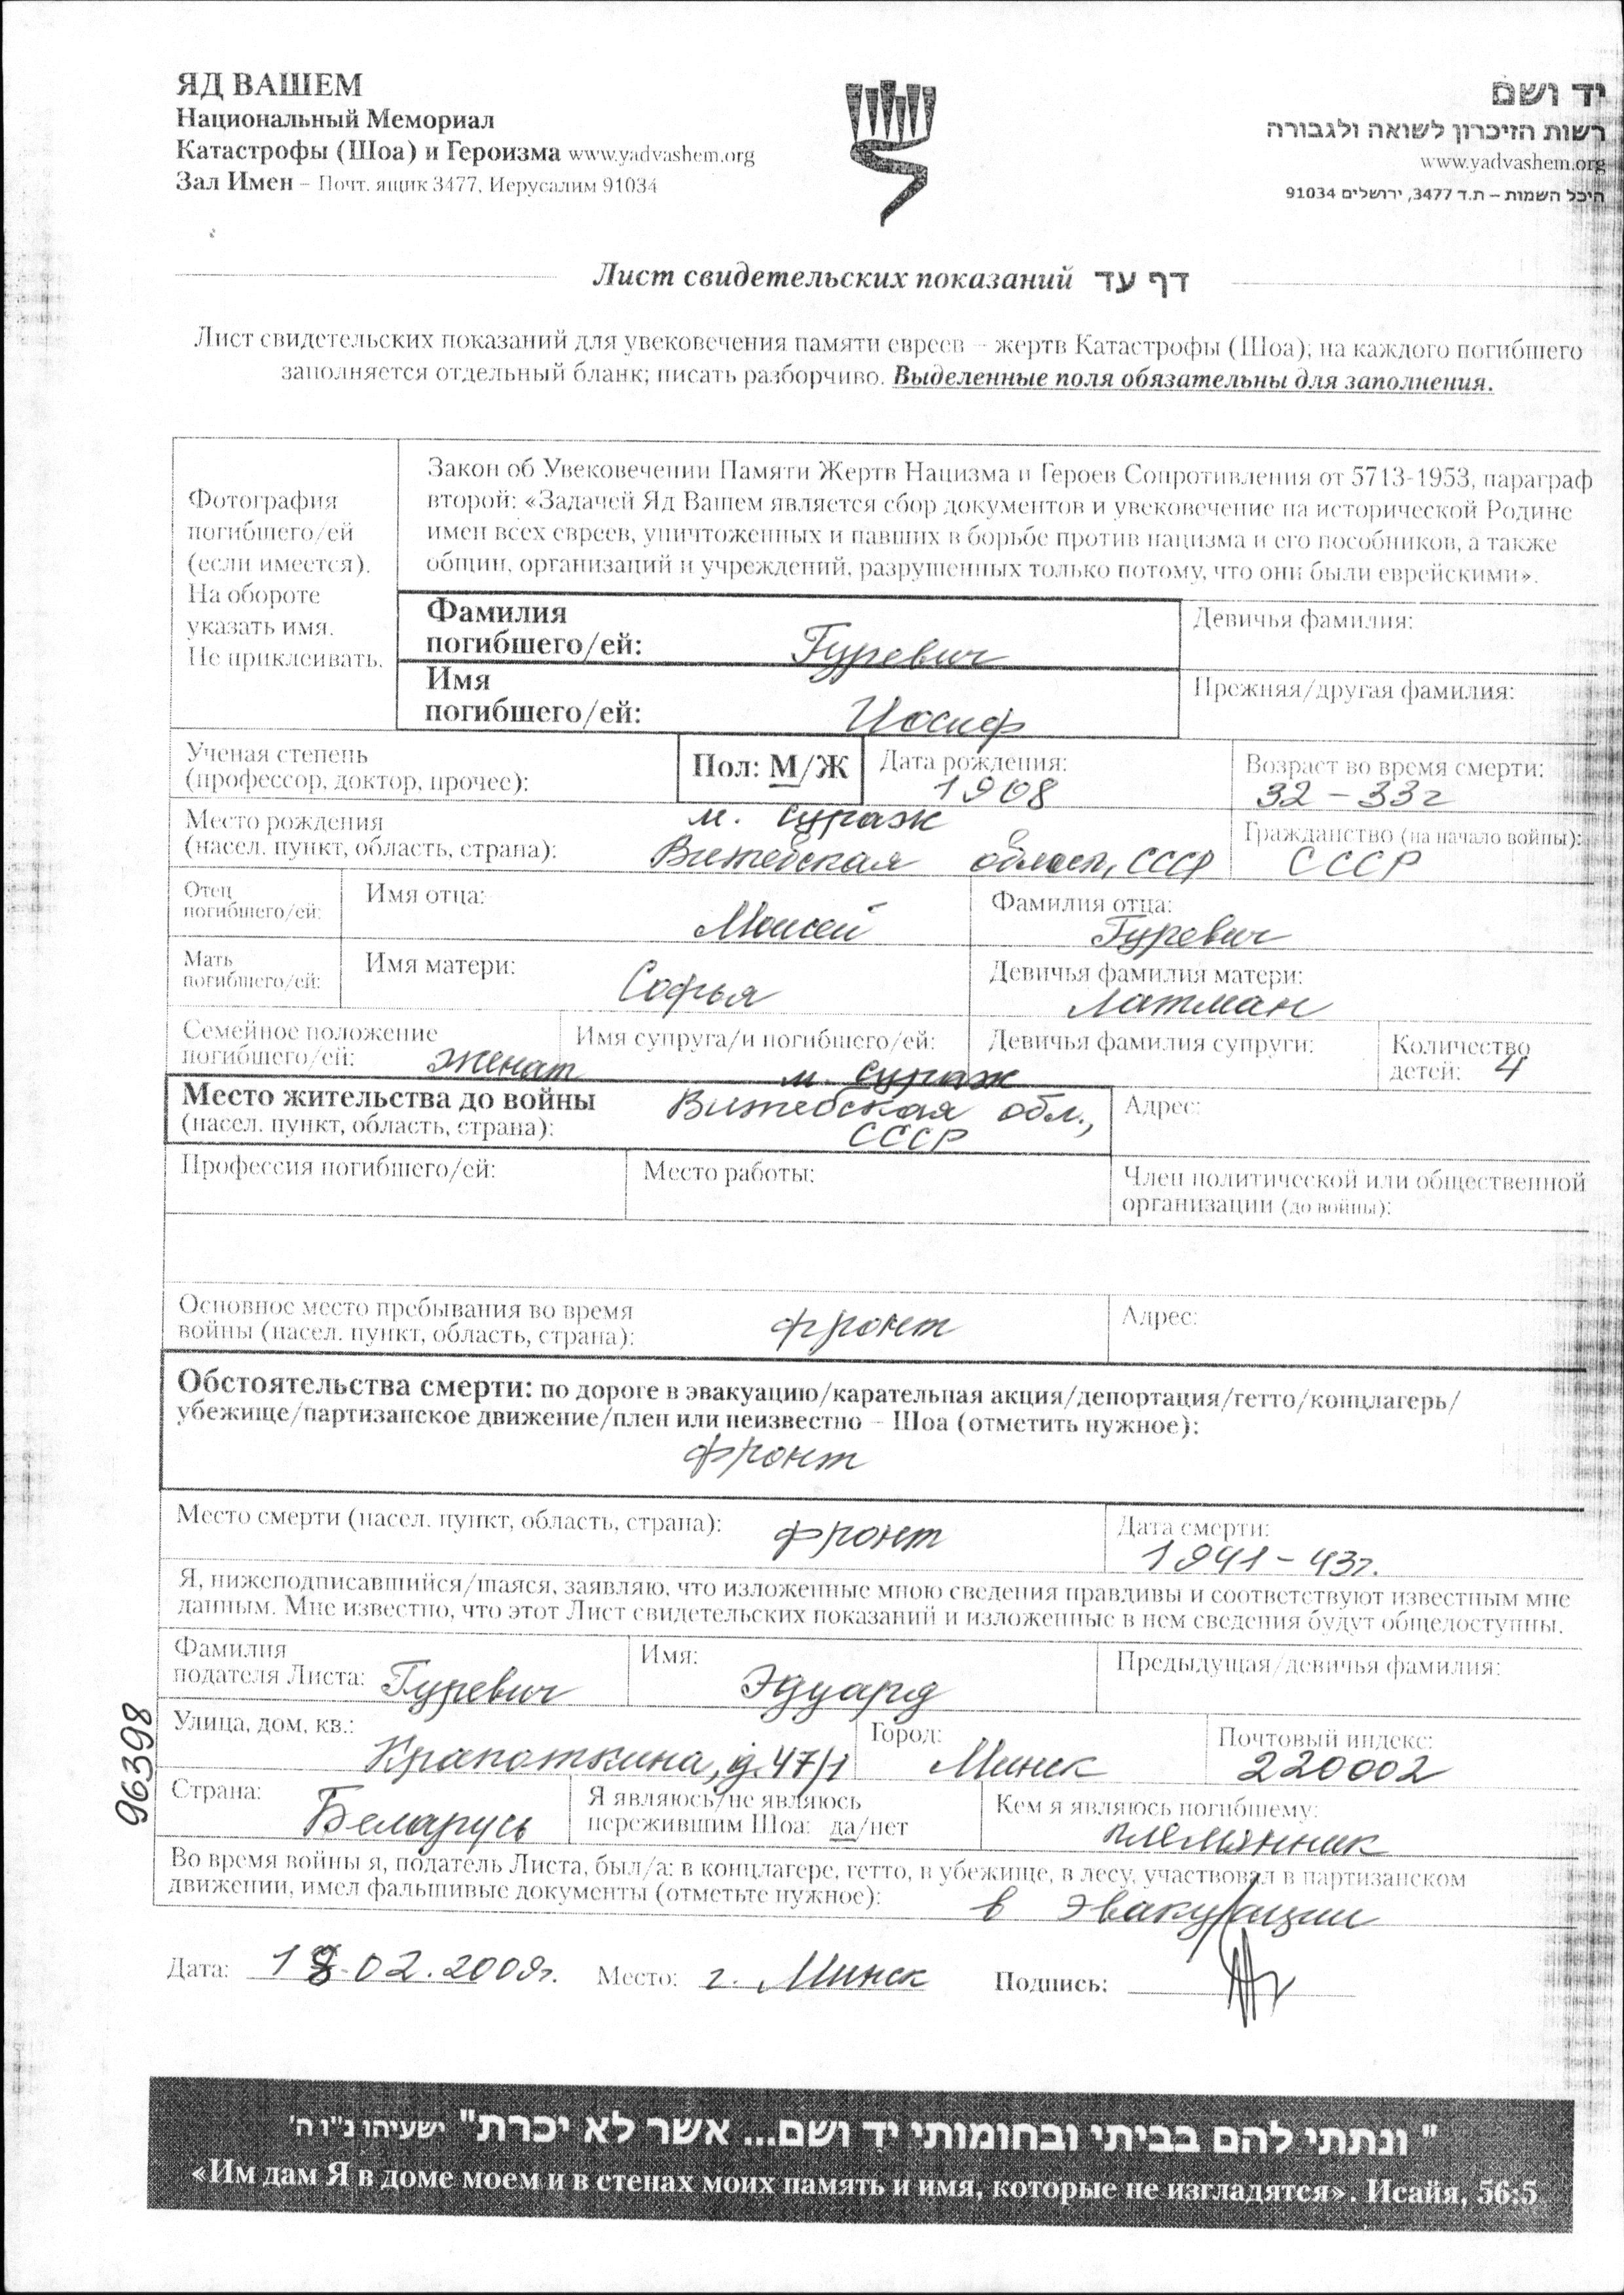 ЯД ВАШЕМ
Национальный Мемориал
Катастрофы (Шоа) и Героизма www.yadvashem.org
Зал Имен – Почт. ящик 3477, Иерусалим 91034
יד ושם
רשות הזיכרון לשואה ולגבורה
www.yadvashem.org
היכל השמות – ת.ד 3477, ירושלים 91034
Лист свидетельских показаний דף עד
Лист свидетельских показаний для увековечения памяти евреев – жертв Катастрофы (Шоа); на каждого погибшего
заполняется отдельный бланк; писать разборчиво. Выделенные поля обязательны для заполнения.
Фотография
погибшего/ей
(если имеется).
На обороте
указать имя.
Не приклеивать.
Закон об Увековечении Памяти Жертв Нацизма и Героев Сопротивления от 5713-1953, параграф
второй: «Задачей Яд Вашем является сбор документов и увековечение на исторической Родине
имен всех евреев, уничтоженных и павших в борьбе против нацизма и его пособников, а также
общин, организаций и учреждений, разрушенных только потому, что они были еврейскими».
Фамилия
погибшего/ей: Гуревич
Девичья фамилия:
Имя
погибшего/ей: Иосиф
Прежняя/другая фамилия:
Ученая степень
(профессор, доктор, прочее):
Пол: М/Ж
Дата рождения:
1908
Возраст во время смерти:
32 – 33 г
Место рождения
(насел. пункт, область, страна):
м. Сураж
Витебская област, СССР
Гражданство (на начало войны):
СССР
Отец
погибшего/ей:
Имя отца: Моисей
Фамилия отца:
Гуревич
Мать
погибшего/ей:
Имя матери: Софья
Девичья фамилия матери:
Латман
Семейное положение
погибшего/ей: женат
Имя супруга/и погибшего/ей:
Девичья фамилия супруги:
Количество
детей: 4
Место жительства до войны
(насел. пункт, область, страна):
м. Сураж
Витебская обл.,
СССР
Адрес:
Профессия погибшего/ей:
Место работы:
Член политической или общественной
организации (до войны):
Основное место пребывания во время
войны (насел. пункт, область, страна): фронт
Адрес:
Обстоятельства смерти: по дороге в эвакуацию/карательная акция/депортация/гетто/концлагерь/
убежище/партизанское движение/плен или неизвестно – Шоа (отметить нужное):
фронт
Место смерти (насел. пункт, область, страна): фронт
Дата смерти:
1941 – 43г.
Я, нижеподписавшийся/шаяся, заявляю, что изложенные мною сведения правдивы и соответствуют известным мне
данным. Мне известно, что этот Лист свидетельских показаний и изложенные в нем сведения будут общедоступны.
Фамилия
подателя Листа: Гуревич
Имя: Эдуард
Предыдущая/девичья фамилия:
Улица, дом, кв.:
Крапоткина, д. 47/1
Город:
Минск
Почтовый индекс:
220002
Страна:
Беларусь
Я являюсь/не являюсь
пережившим Шоа: да/нет
Кем я являюсь погибшему:
племянник
Во время войны я, податель Листа, был/а: в концлагере, гетто, в убежище, в лесу, участвовал в партизанском
движении, имел фальшивые документы (отметьте нужное): в эвакуации
Дата: 18.02.2009г. Место: г. Минск Подпись:
96398
" ונתתי להם בביתי ובחומותי יד ושם... אשר לא יכרת" ישעיהו נ"ו ה'
«Им дам Я в доме моем и в стенах моих память и имя, которые не изгладятся». Исайя, 56:5